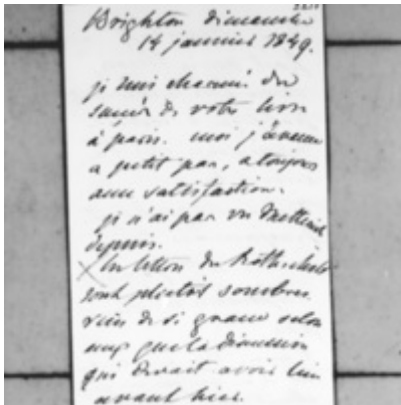 Brighton dimanche
14 janvier 1849.
je suis charmé du
succès de votre livre
à paris. moi j'avance
a petit pas, a toujours
avec satisfaction.
je n'ai pas vu
depuis.
les lettres du Rothschild
sont plutôt sombres
rien de si grave selon
moi que la discussion
qui devait avoir lieu
avant hier.